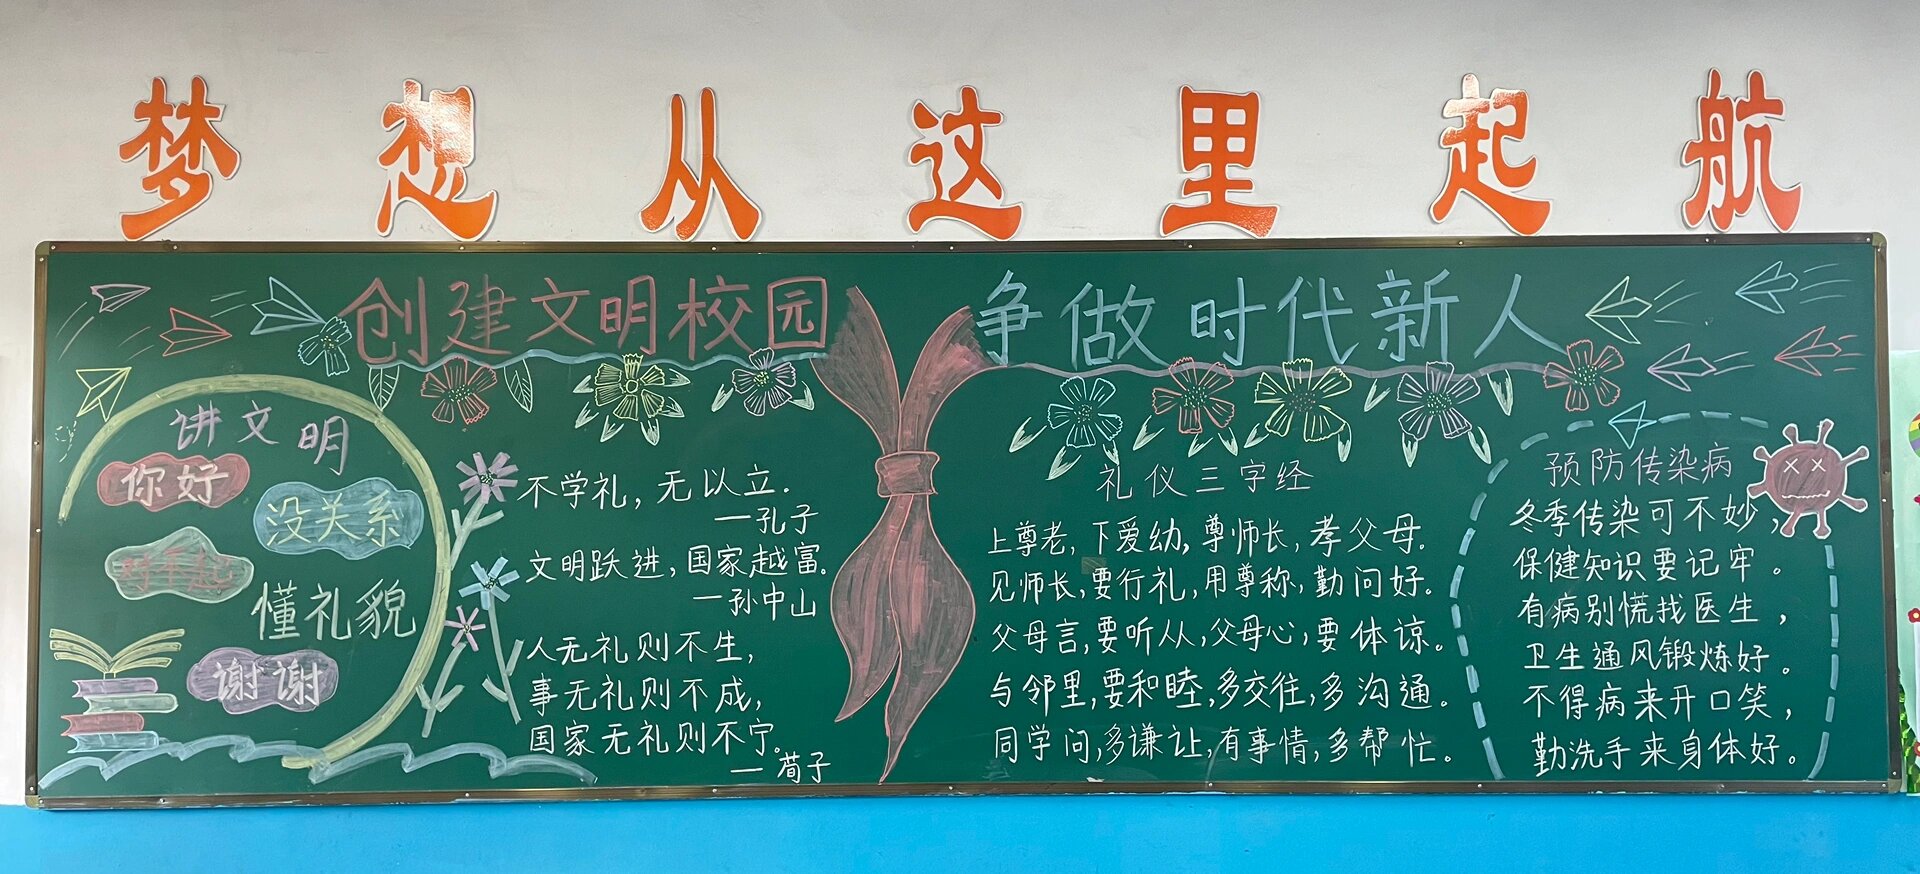 梦想从这里起航
创建文明校园
争做时代新人
讲文明
你好
没关系
对不起
懂礼貌
谢谢
不学礼，无以立.
—孔子
文明跃进，国家越富.
—孙中山
人无礼则不生，
事无礼则不成，
国家无礼则不宁。
—荀子
礼仪三字经
上尊老，下爱幼，尊师长，孝父母.
见师长，要行礼，用尊称，勤问好。
父母言，要听从，父母心，要体谅。
与邻里，要和睦，多交往，多沟通。
同学问，多谦让，有事情，多帮忙。
预防传染病
冬季传染可不妙，
保健知识要记牢。
有病别慌找医生，
卫生通风锻炼好。
不得病来开口笑，
勤洗手来身体好。